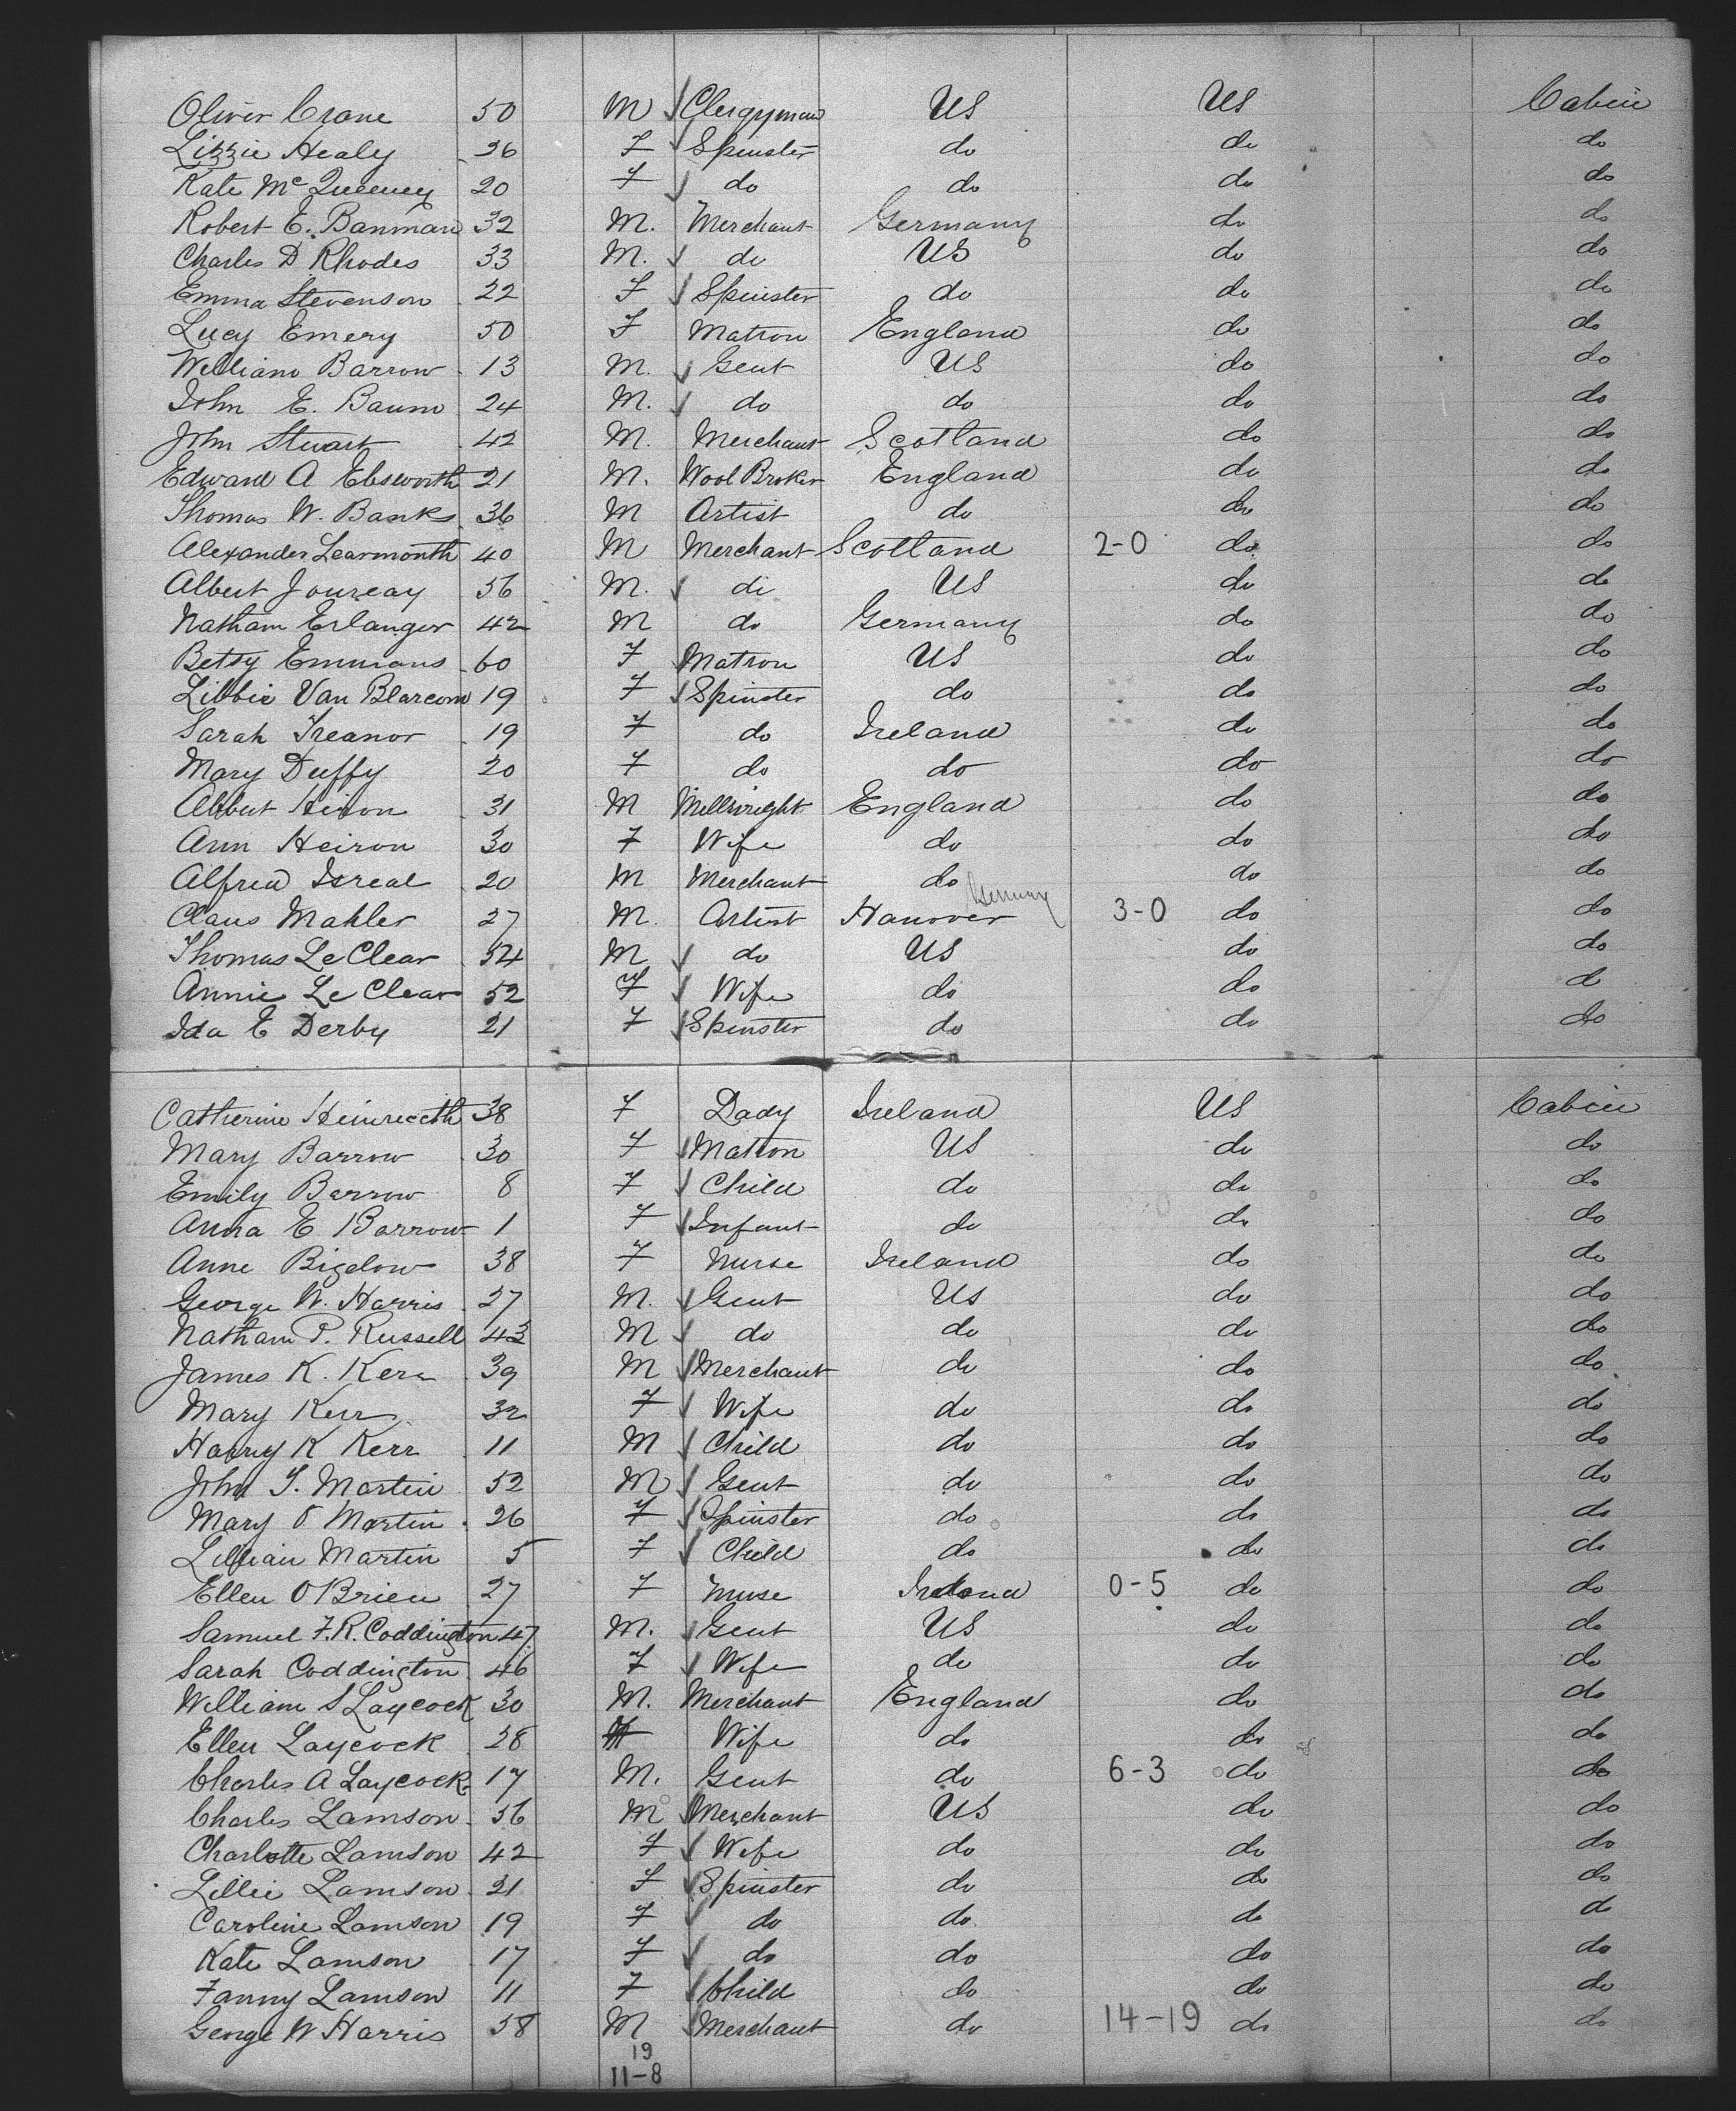 Oliver Crane 50 M Clergyman US US Cabin
Lizzie Healy 26 F Spinster do do do
Kate Mc Queeney 20 F do do do do
Robert E. Banman 32 M. Merchant Germany do do
Charles D Rhodes 33 M. do US do do
Emma Stevenson 22 F Spinster do do do
Lucy Emery 50 F Matron England do do
William Barrow 13 M. Gent US do do
John E. Baum 24 M. do do do do
John Stuart 42 M. Merchant Scotland do do
Edward A Ebsworth 21 M. Wool Broker England do do
Thomas W. Banks 36 M Artist do do do
Alexander Learmonth 40 M Merchant Scotland 2-0 do do
Albert Jourcay 56 M. do US do do
Natham Erlanger 42 M do Germany do do
Betsy Emmans 60 F Matron US do do
Libbie Van Blarcom 19 F Spinster do do do
Sarah Treanor 19 F do Ireland do do
Mary Duffy 20 F do do do do
Albert 31 M Millwright England do do
Ann Heiron 30 F Wife do do do
Alfred Isreal 20 M Merchant do do do
Germany
Claus Mahler 27 M. Artist Hanover 3-0 do do
Thomas Le Clear 54 M do US do do
Annie Le Clear 52 F Wife do do d
Ida E Derby 21 F Spinster do do do
Catherine 38 F Lady Ireland US Cabin
Mary Barrow 30 F Matron US do do
Emily Barrow 8 F Child do do do
Anna E Barrow 1 F Infant do do do
Anne Bigelow 38 F Nurse Ireland do do
George W. Harris 27 M. Gent US do do
Natham P. Russell 43 M do do do do
James K. Kerr 39 M Merchant do do do
Mary Kerr 32 F Wife do do do
Harry K Kerr 11 M Child do do do
John T. Martin 52 M Gent do do do
Mary O Martin 26 F Spinster do do do
Lillian Martin 5 F Child do do do
Ellen O'Brien 27 F Nurse Ireland 0-5 do do
Samuel F.R. Coddington 47 M. Gent US do do
Sarah Coddington 46 F Wife do do do
William S Laycock 30 M. Merchant England do do
Ellen Laycock 28 F Wife do do do
Charles A Laycock 17 M. Gent do 6-3 do do
Charles Lamson 56 M Merchant US do do
Charlotte Lamson 42 F Wife do do do
Lillie Lamson 21 F Spinster do do do
Caroline Lamson 19 F do do do do
Kate Lamson 17 F do do do do
Fanny Lamson 11 F Child do do do
George W Harris 58 M Merchant do 14-19 do do
19
11-8